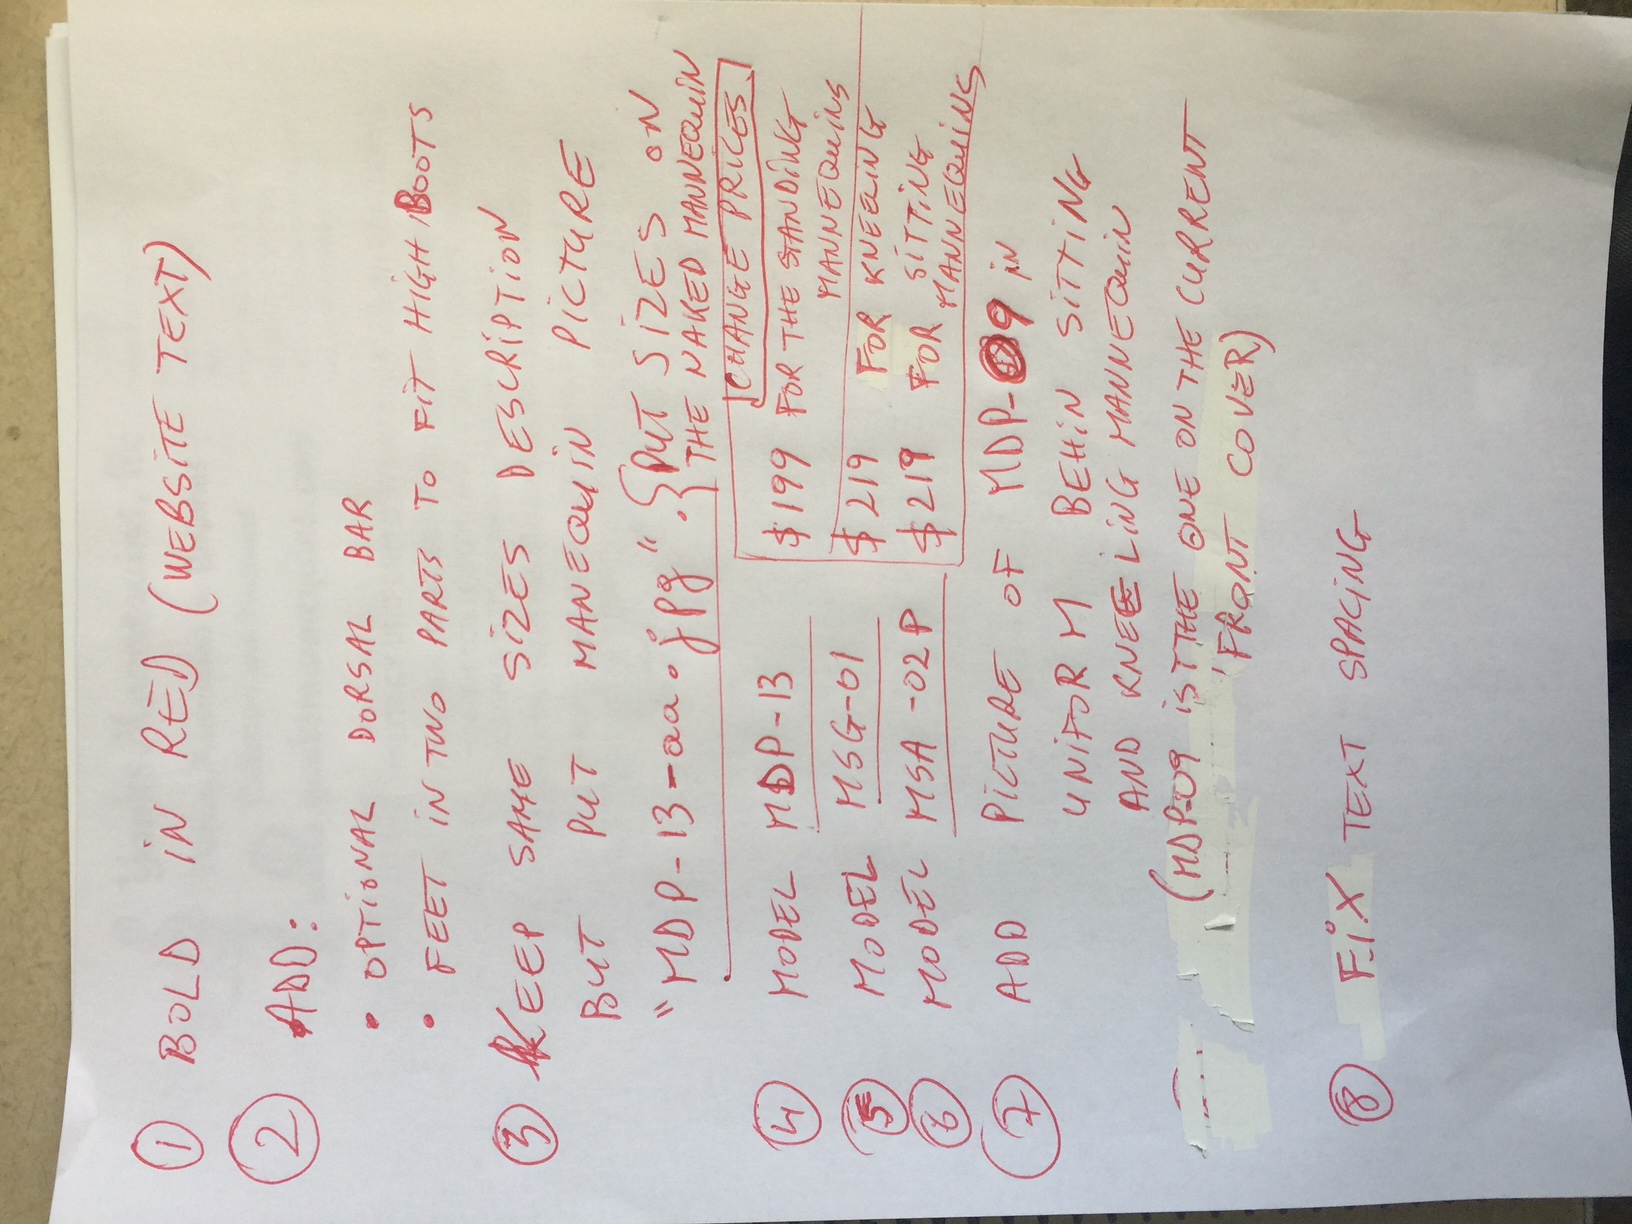 ① BOLD IN RED (WEBSITE TEXT)
② ADD:
• OPTIONAL DORSAL BAR
• FEET IN TWO PARTS TO FIT HIGH BOOTS
③ KEEP SAME SIZES DESCRIPTION
BUT PUT MANEQUIN PICTURE
"MDP-13-aa.jpg". { PUT SIZES ON
THE NAKED MANNEQUIN
CHANGE PRICES
④ MODEL MDP-13 $199 FOR THE STANDING
MANNEQUINS
⑤ MODEL MSG-01 $219 FOR KNEELING
⑥ MODEL MSA-02P $219 FOR SITTING
MANNEQUINS
⑦ ADD PICTURE OF MDP-09 IN
UNIFORM BEHIN SITTING
AND KNEELING MANNEQUIN
(MDP-09 IS THE ONE ON THE CURRENT
FRONT COVER)
⑧ FIX TEXT SPACING